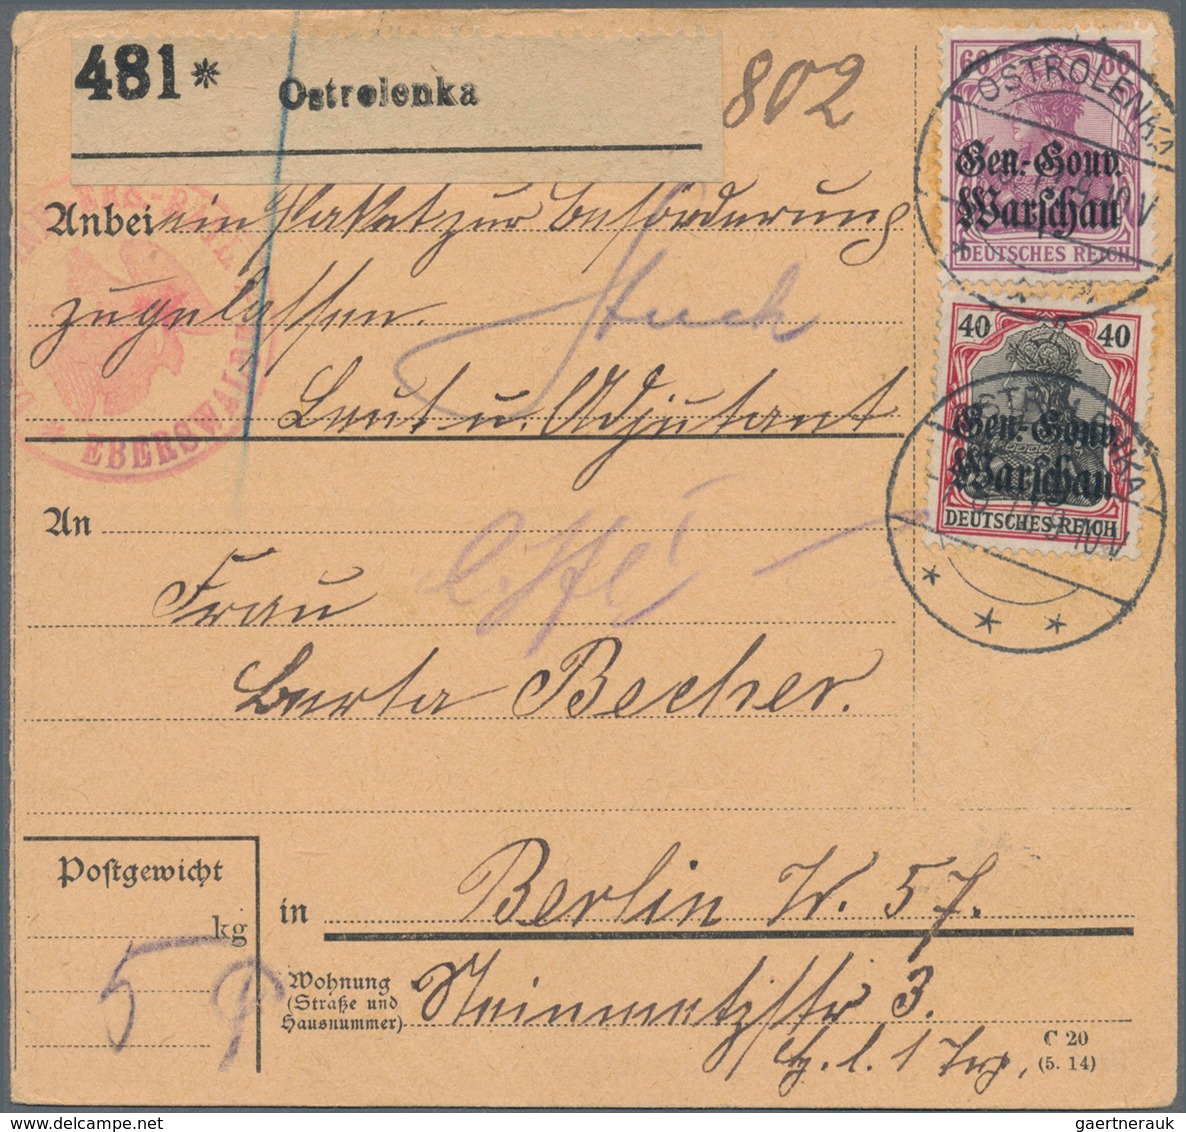 481* Ostrolenka
802
Anbei ein Paket zur Beförderung
zugelassen.
Stuck
Leut u. Adjutant
EBERSWALDE
60 60
Gen.-Gouv.
Warschau
DEUTSCHES REICH
OSTROLENKA
9-10 V
40 40
Gen.-Gouv.
Warschau
DEUTSCHES REICH
OSTROLENKA
9-10 V
An
Frau
Berta Becher.
Postgewicht
kg
5 P
in Berlin W. 57.
Wohnung
(Straße und
Hausnummer)
Steinmetzstr 3.
C 20
(5. 14)
gaertnerauk